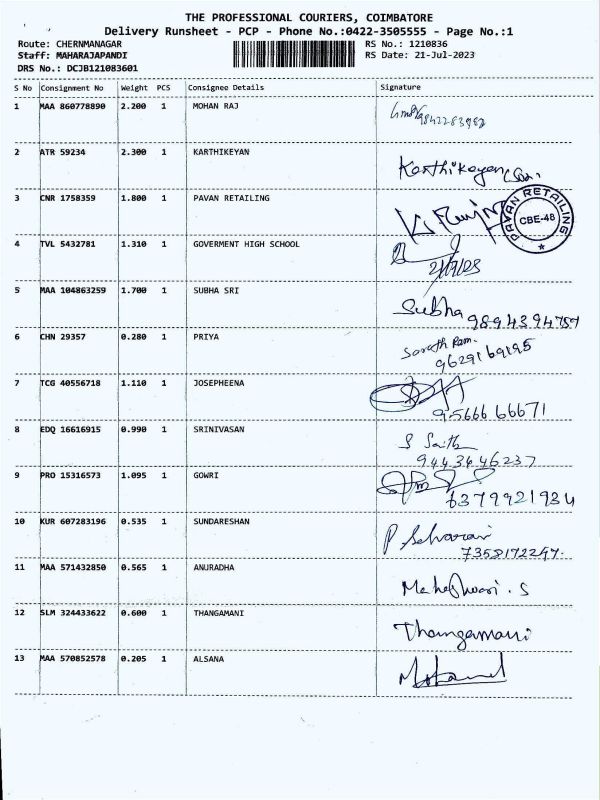 THE PROFESSIONAL COURIERS, COIMBATORE
Delivery Runsheet - PCP - Phone No.:0422-3505555 - Page No.:1
Route: CHERNMANAGAR RS No.: 1210836
Staff: MAHARAJAPANDI RS Date: 21-Jul-2023
DRS No.: DCJB121083601
S No Consignment No Weight PCS Consignee Details Signature
1 MAA 860778890 2.200 1 MOHAN RAJ 9842283982
2 ATR 59234 2.300 1 KARTHIKEYAN Karthikeyan
3 CNR 1758359 1.800 1 PAVAN RETAILING
PAVAN RETAILING
CBE-48
4 TVL 5432781 1.310 1 GOVERMENT HIGH SCHOOL
21/7/23
5 MAA 104863259 1.700 1 SUBHA SRI Subha 9894394757
6 CHN 29357 0.280 1 PRIYA Sarath Ram.
9629169195
7 TCG 40556718 1.110 1 JOSEPHEENA
9566666671
8 EDQ 16616915 0.990 1 SRINIVASAN S Saith
9443646237
9 PRO 15316573 1.095 1 GOWRI
6379921934
10 KUR 607283196 0.535 1 SUNDARESHAN
7358172247.
11 MAA 571432850 0.565 1 ANURADHA Maheshwari . S
12 SLM 324433622 0.600 1 THANGAMANI Thangamani
13 MAA 570852578 0.205 1 ALSANA